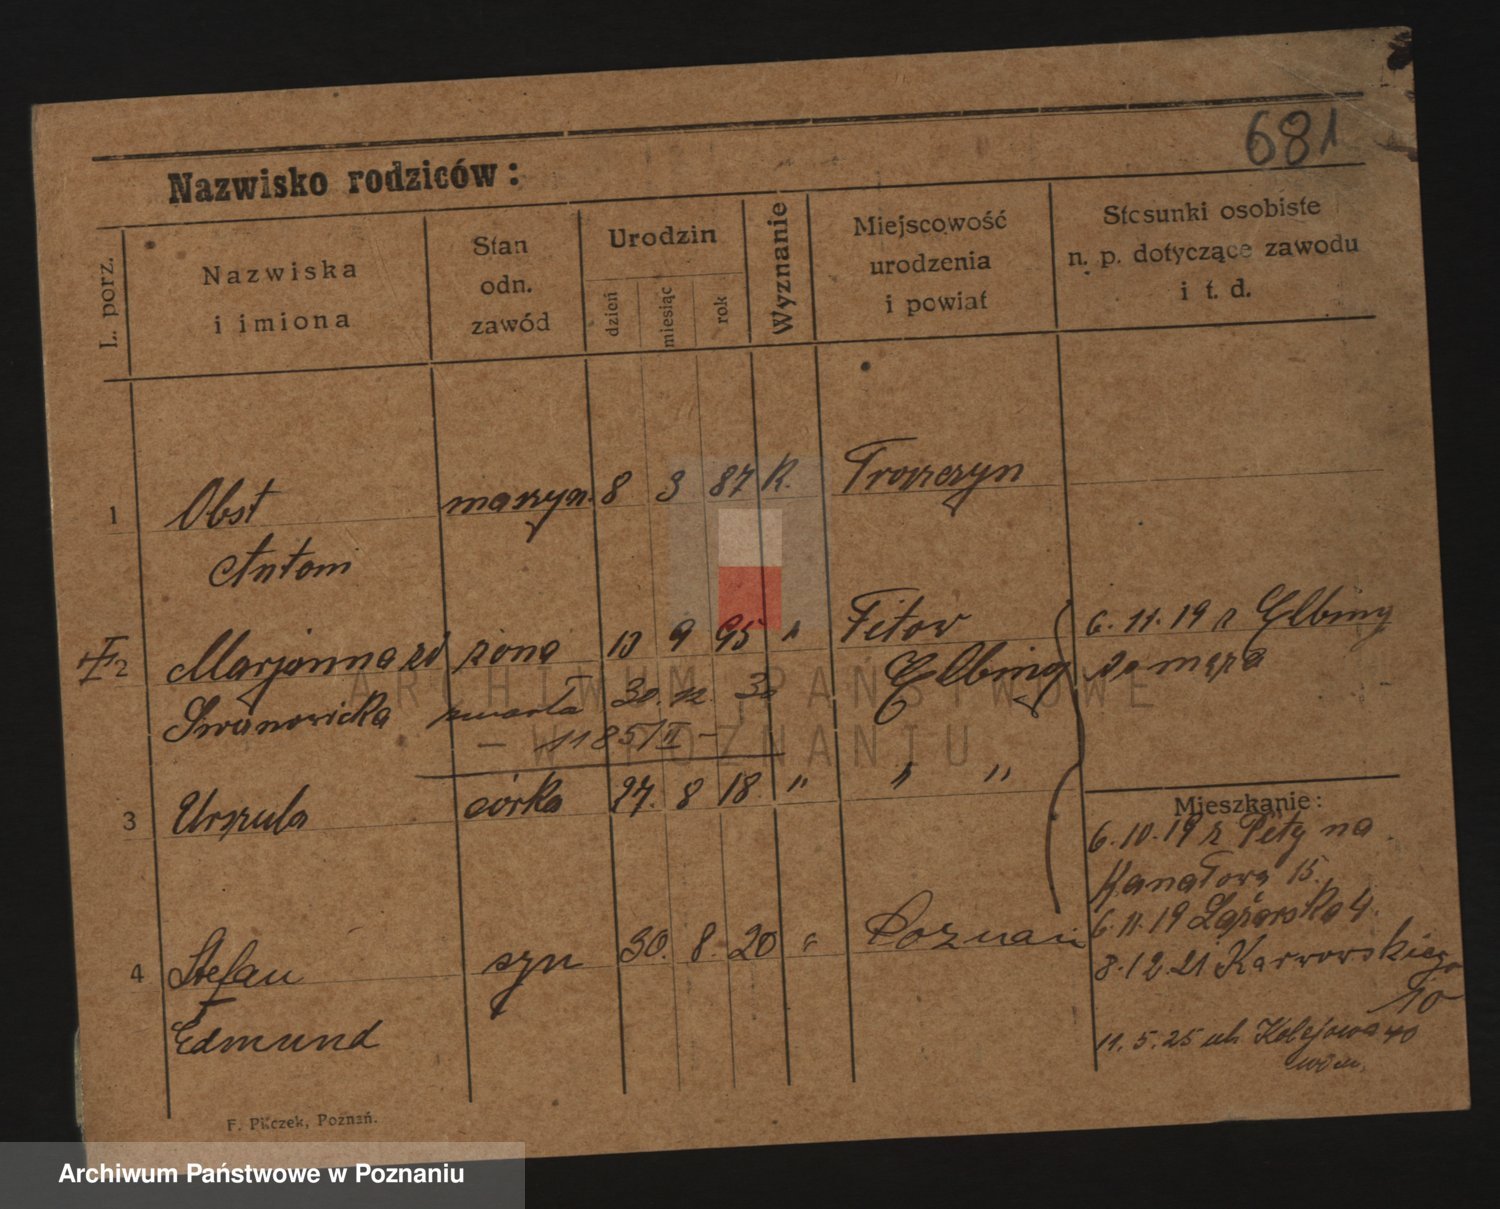 681
Nazwisko rodziców :
L. porz.
Nazwiska
i imiona
Stan
odn.
zawód
Urodzin
dzień
miesiąc
rok
Wyznanie
Miejscowość
urodzenia
i powiat
Stosunki osobiste
n. p. dotyczące zawodu
i t. d.
1 Obst 8 3 87 K.
Antoni
2 Marjanna żona 13 9 95 "
6.11.19 z Elbing
Iwanowicka zmarła 30. 12. 30 Elbing
1185/II -
3 Urszula córka 27. 8 18. " " "
Mieszkanie :
6.10.19 z na
Kanałową 15.
6.11.19 Łazarska 4.
4 Stefan syn 30. 8. 20 " Poznań
8.12.21 Karwowskiego
10
Edmund
11.5.25 ul. Kolejowa 40
F. Pilczek, Poznań.
ARCHIWUM PAŃSTWOWE
- W POZNANIU
Archiwum Państwowe w Poznaniu